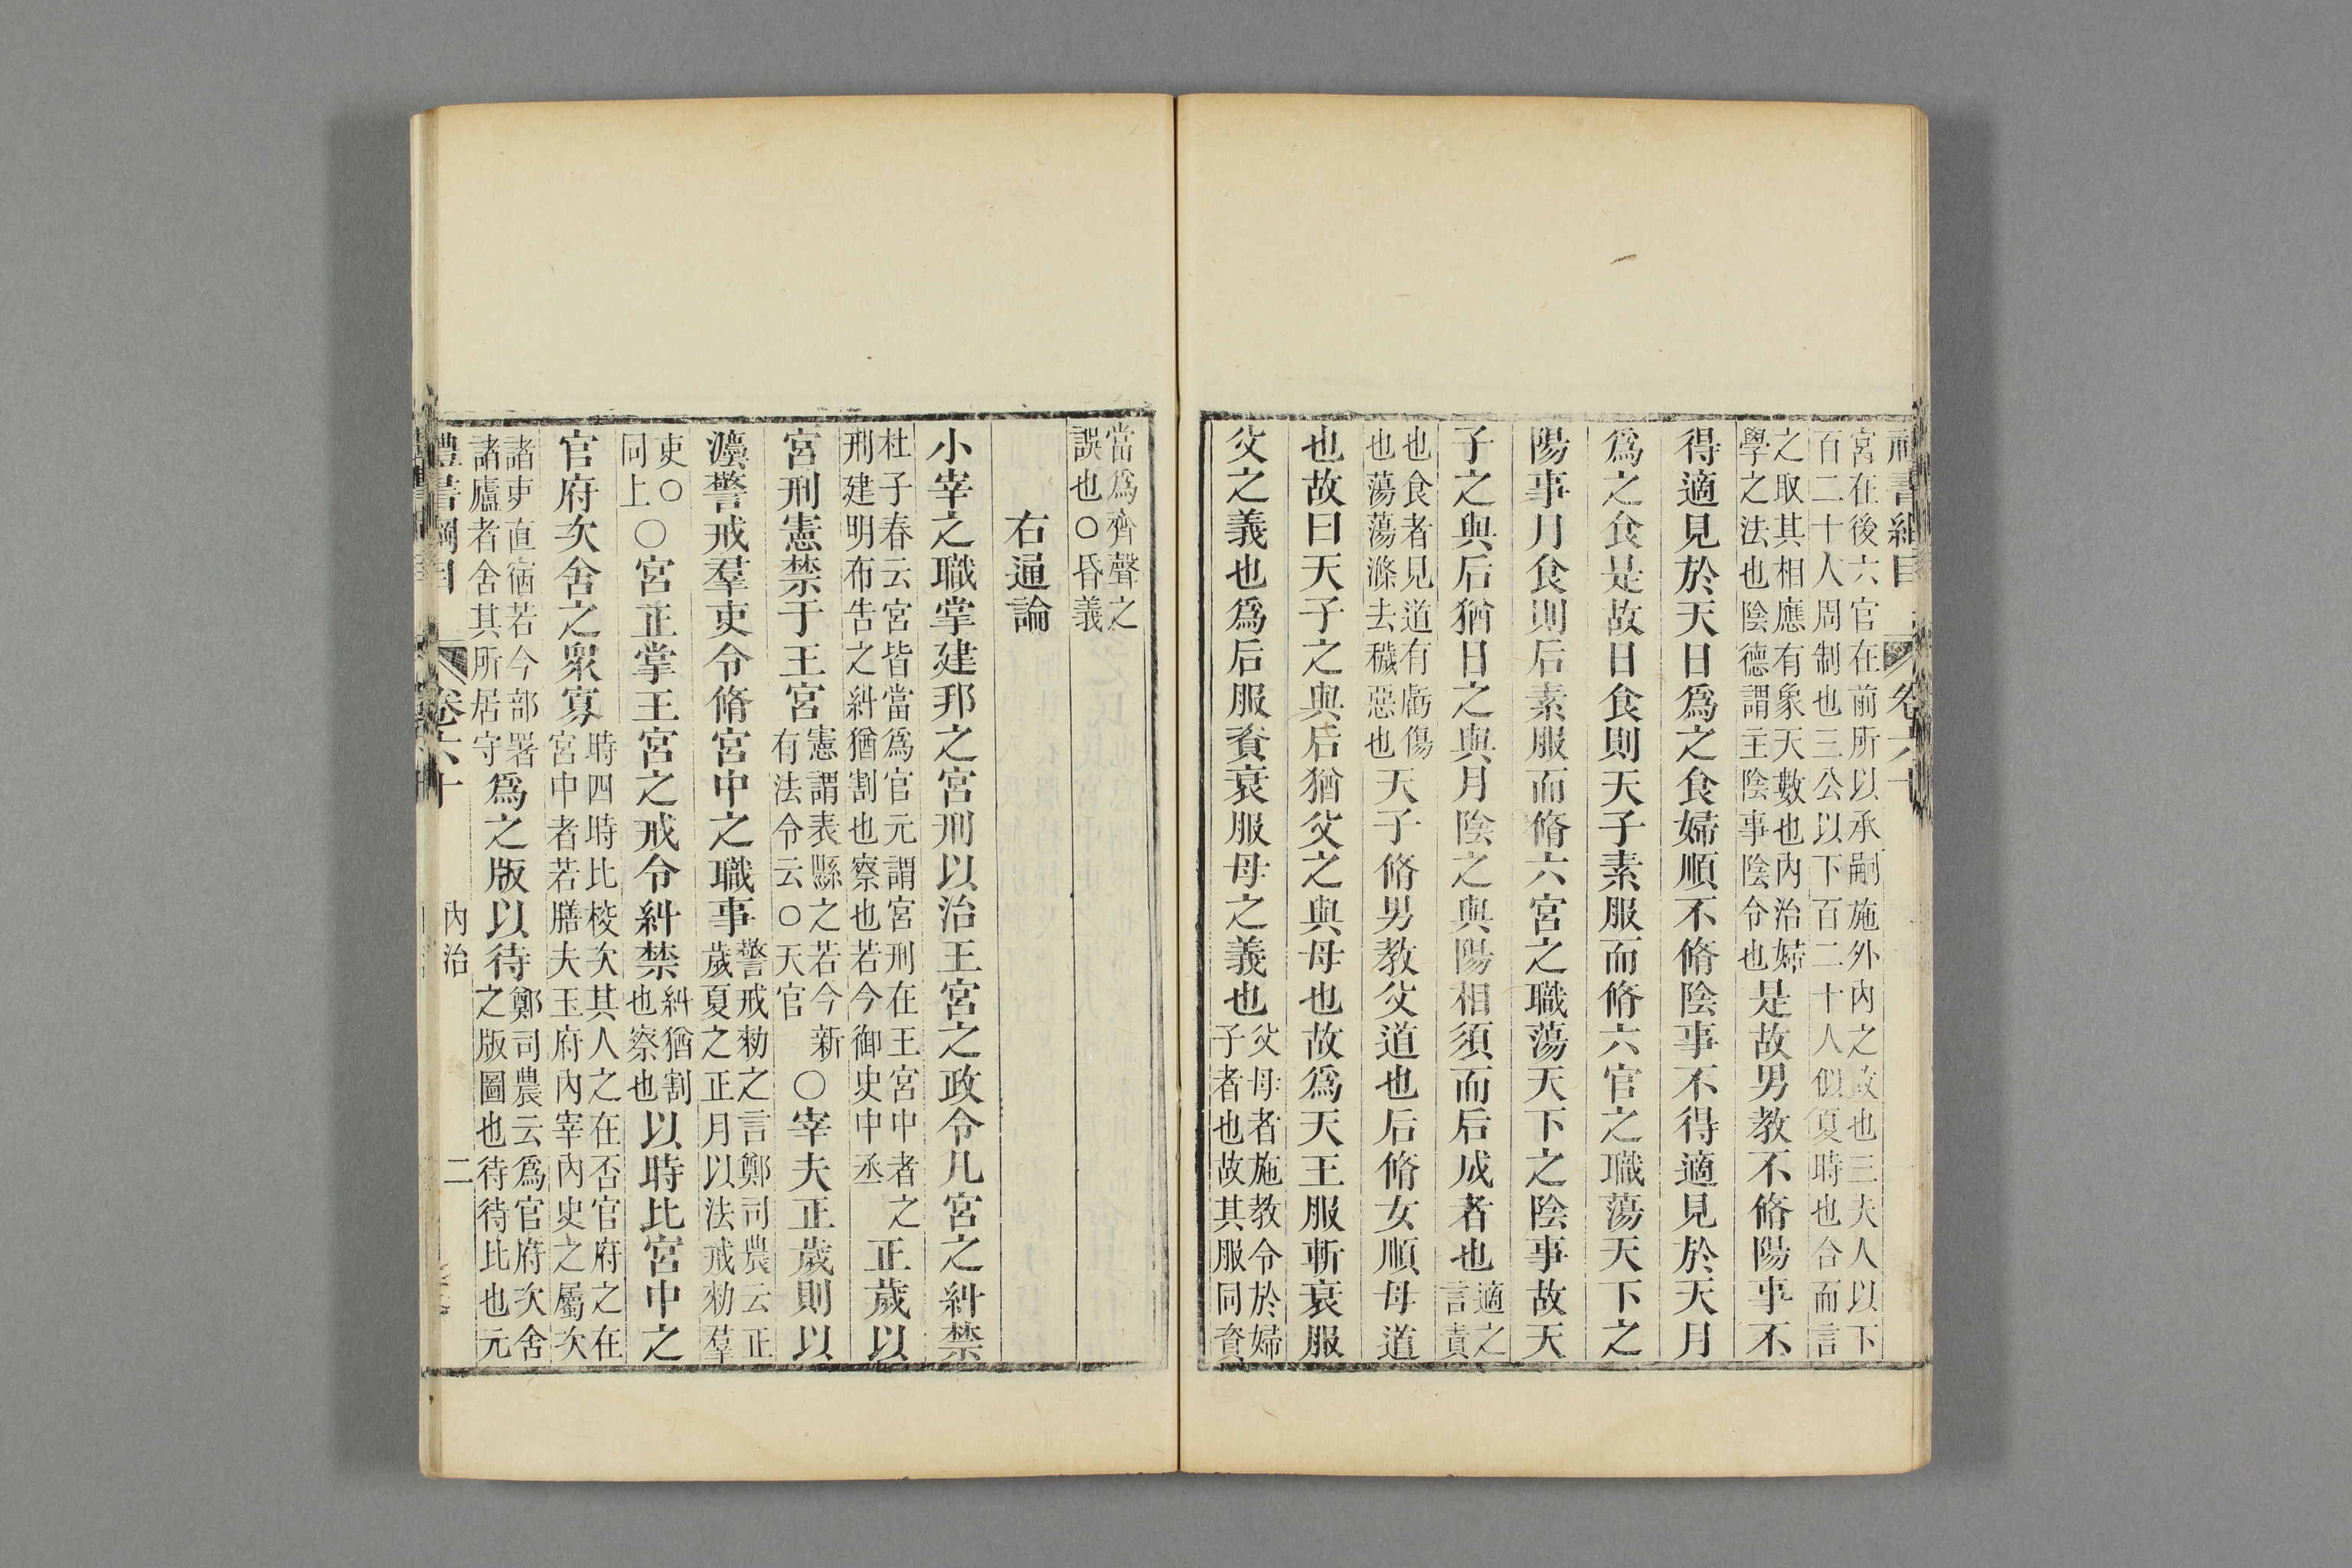 宮在後六官在前所以承嗣施外內之政也三夫人以下
百二十人周制也三公以下百二十人似夏時也合而言
之取其相應有象天數也內治婦
學之法也陰德謂主陰事陰令也
是故男教不脩陽事不
得適見於天日爲之食婦順不脩陰事不得適見於天月
爲之食是故日食則天子素服而脩六官之職蕩天下之
陽事月食則后素服而脩六宮之職蕩天下之陰事故天
子之與后猶日之與月陰之與陽相須而后成者也
適之
言責
也食者見道有虧傷
也蕩蕩滌去穢惡也
天子脩男教父道也后脩女順母道
也故曰天子之與后猶父之與母也故爲天王服斬衰服
父之義也爲后服資衰服母之義也
父母者施教令於婦
子者也故其服同資
當爲齊聲之
誤也○昏義
右通論
小宰之職掌建邦之宮刑以治王宮之政令凡宮之糾禁
杜子春云宮皆當爲官元謂宮刑在王宮中者之
刑建明布告之糾猶割也察也若今御史中丞
正歲以
宮刑憲禁于王宮
憲謂表縣之若今新
有法令云○天官
○宰夫正歲則以
灋警戒羣吏令脩宮中之職事
警戒勑之言鄭司農云正
歲夏之正月以法戒勑羣
吏○
同上
○宮正掌王宮之戒令糾禁
糾猶割
也察也
以時比宮中之
官府次舍之衆寡
時四時比校次其人之在否官府之在
宮中者若膳夫玉府內宰內史之屬次
諸吏直宿若今部署
諸廬者舍其所居守
爲之版以待
鄭司農云爲官府次舍
之版圖也待待比也元
禮書綱目
卷六十
內治
二